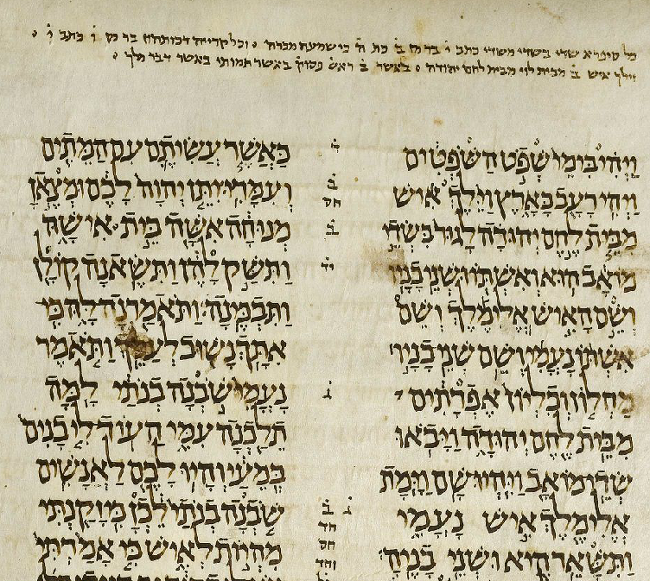 וילך איש מבית לוי מבית לחם יהודה באשר ראש פסוק באשר תמותי באשר דבר מלך
וַיְהִי בִּימֵי שְׁפֹט הַשֹּׁפְטִים
וַיְהִי רָעָב בָּאָרֶץ וַיֵּלֶךְ אִישׁ
מִבֵּית לֶחֶם יְהוּדָה לָגוּר בִּשְׂדֵי
מוֹאָב הוּא וְאִשְׁתּוֹ וּשְׁנֵי בָנָיו
וְשֵׁם הָאִישׁ אֱלִימֶלֶךְ וְשֵׁם
אִשְׁתּוֹ נָעֳמִי וְשֵׁם שְׁנֵי בָנָיו
מַחְלוֹן וְכִלְיוֹן אֶפְרָתִים
מִבֵּית לֶחֶם יְהוּדָה וַיָּבֹאוּ
שְׂדֵי מוֹאָב וַיִּהְיוּ שָׁם וַיָּמָת
אֱלִימֶלֶךְ אִישׁ נָעֳמִי
וַתִּשָּׁאֵר הִיא וּשְׁנֵי בָנֶיהָ
כַּאֲשֶׁר עֲשִׂיתֶם עִם הַמֵּתִים
וְעִמָּדִי יִתֵּן יְהוָה לָכֶם וּמְצֶאןָ
מְנוּחָה אִשָּׁה בֵּית אִישָׁהּ
וַתִּשַּׁק לָהֶן וַתִּשֶּׂאנָה קוֹלָן
וַתִּבְכֶּינָה וַתֹּאמַרְנָה לָּהּ כִּי
אִתָּךְ נָשׁוּב לְעַמֵּךְ וַתֹּאמֶר
נָעֳמִי שֹׁבְנָה בְנֹתַי לָמָּה
תֵלַכְנָה עִמִּי הַעוֹד לִי בָנִים
בְּמֵעַי וְהָיוּ לָכֶם לַאֲנָשִׁים
שֹׁבְנָה בְנֹתַי לֵכְןָ כִּי זָקַנְתִּי
מִהְיוֹת לְאִישׁ כִּי אָמַרְתִּי